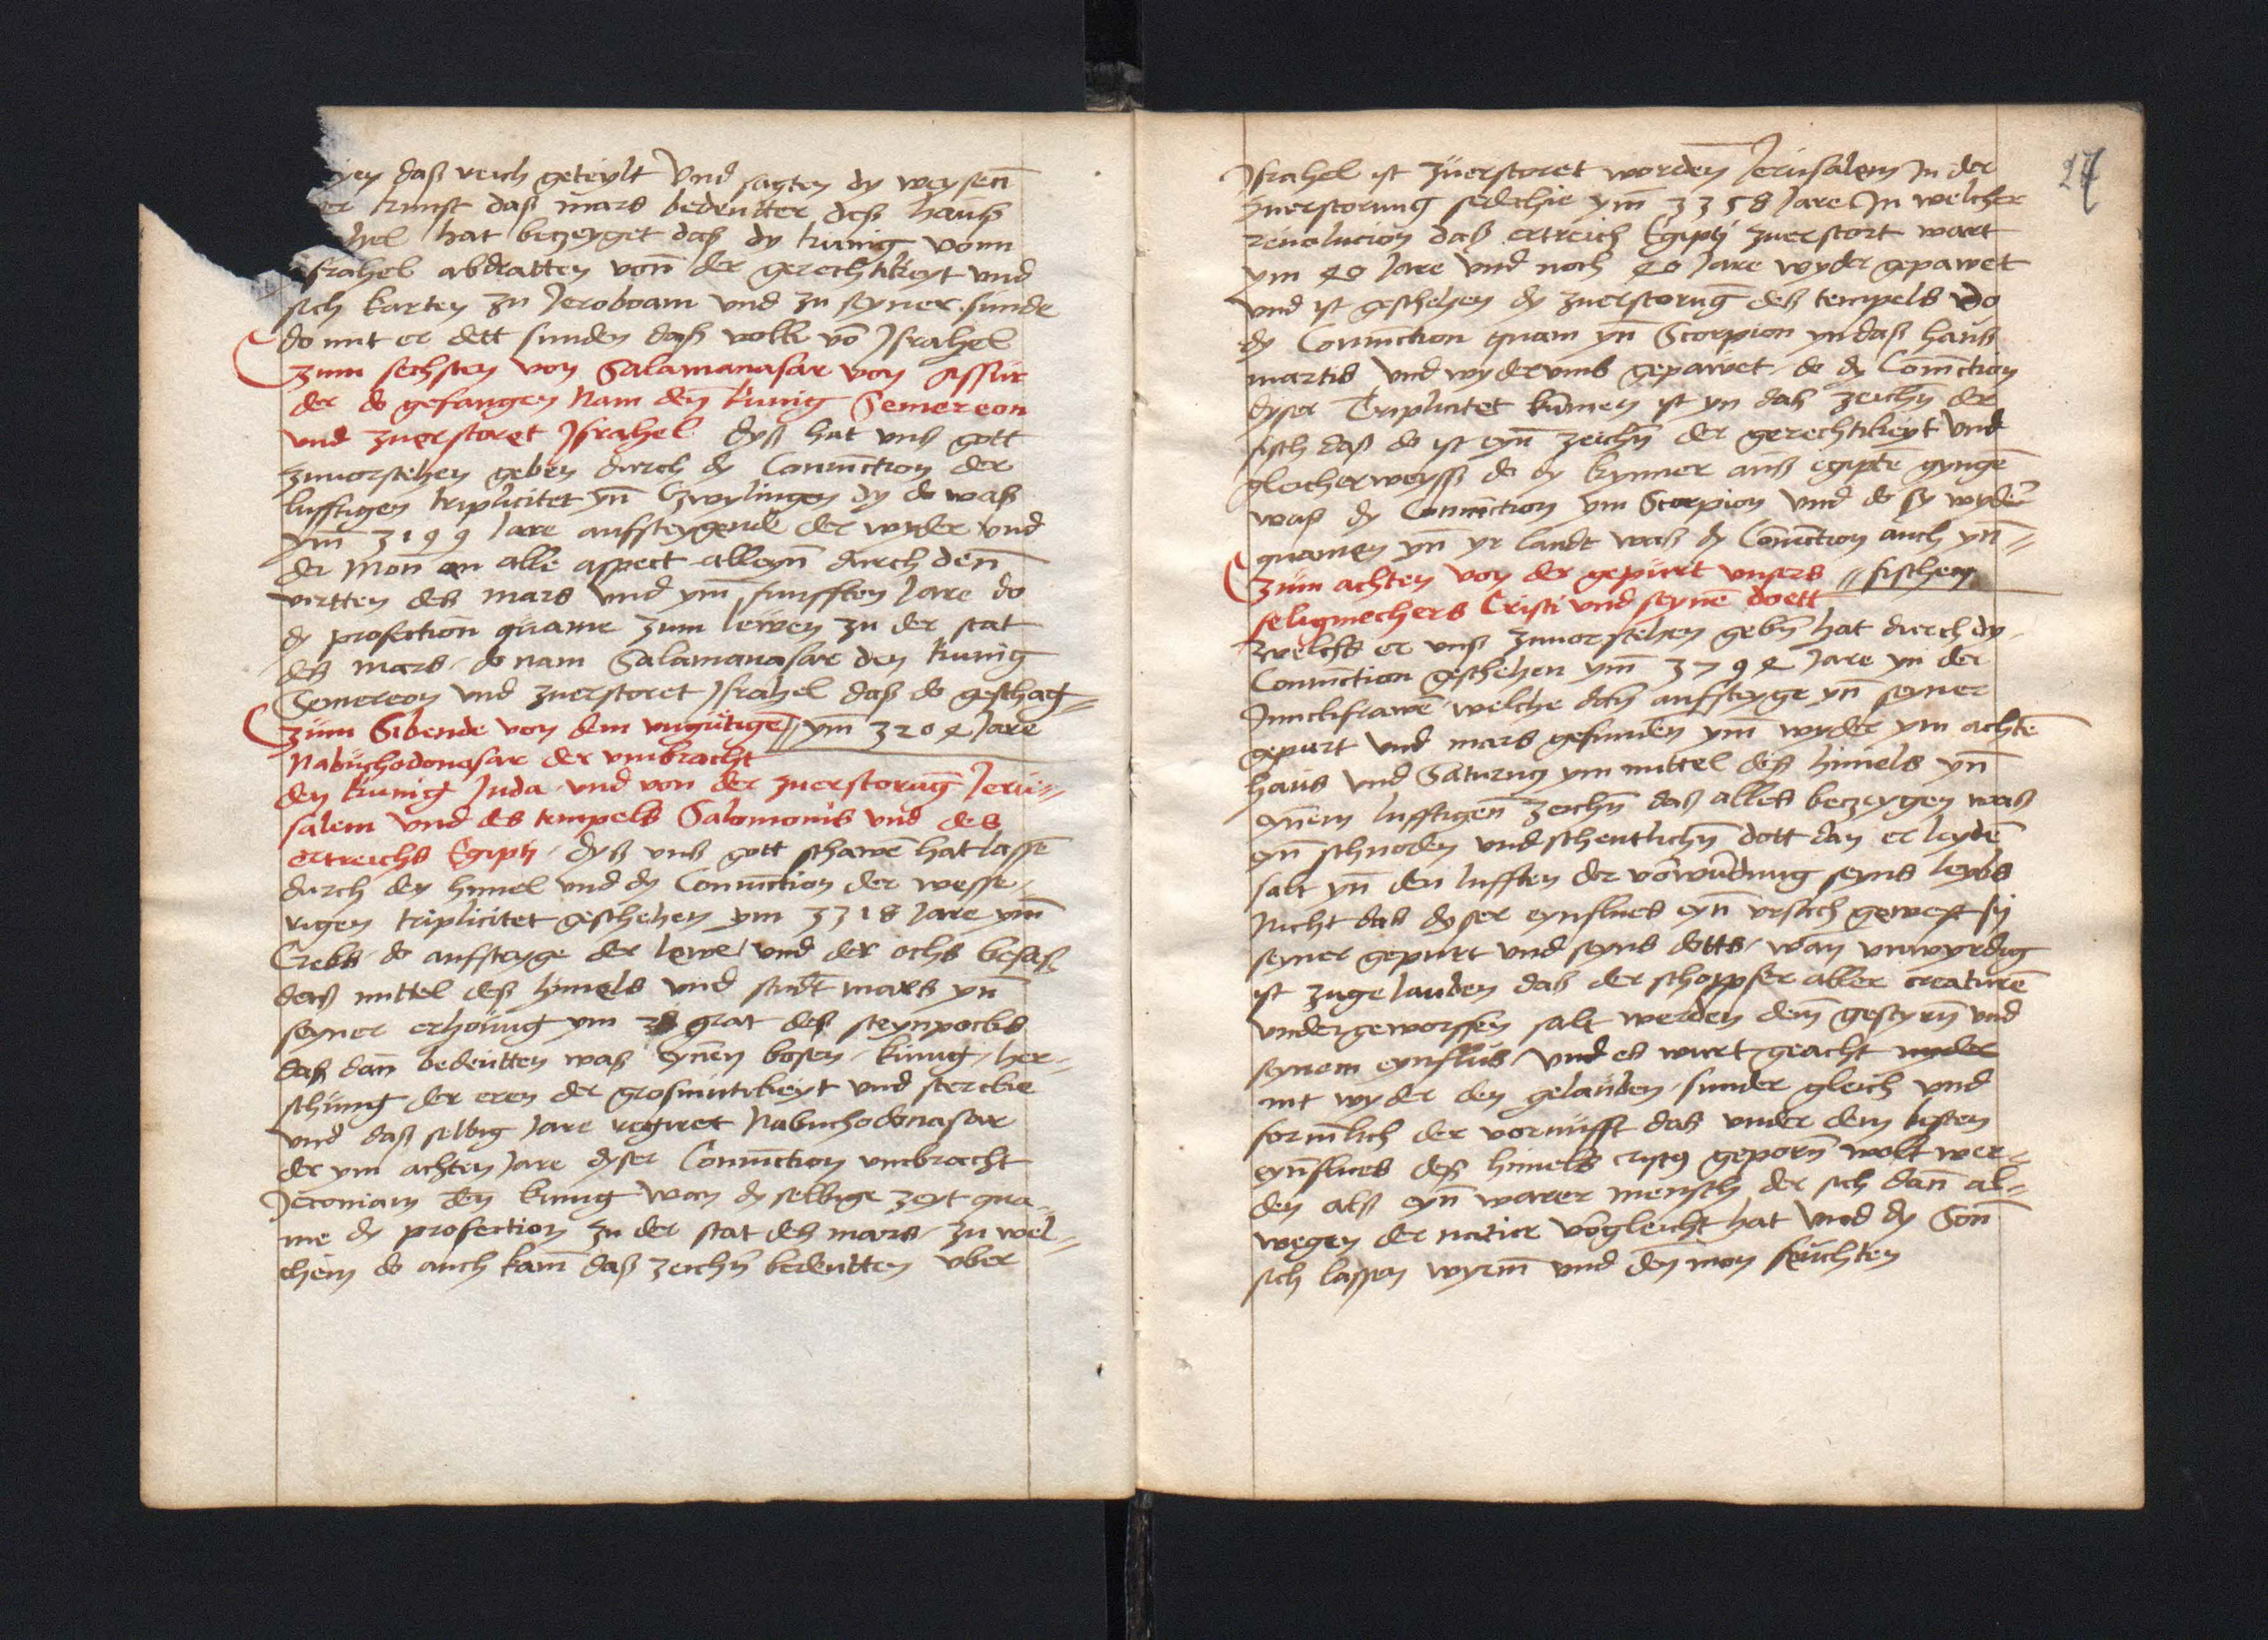 yen daß reich geteylt Vnd sagten dy weysen̄
er kunst daß mars bedeutter deß hauß
hel hat betzeyget daß dy kunig vonn
Israhel abdratten von̄ der gerechtikeyt vnd
sich karten zu Jeroboam vnd zu seyner sunde
do mit er dett sunden daß volk vō Israhel
Zum sechsten von Salamanasar von Assur
der do gefangen Nam den̄ kunig Semereon
vnd zuerstoret Israhel dyß hat vnß gott
zuuorstehen geben durch dy Coniūction der
lufftigen triplicitet yn̄ Czwylingen dy do waß
ym̄ 3199 Jare auffsteygende der wyder vnd
der Mon̄ an alle aspect alleyn̄ durch den̄
virtten des mars Vnd ym̄ funfften Jare do
dy profection quame zum lewen zu der stat
des mars do nam Salamanasar den kunig
Semereon vnd zuerstoret Israhel daß do geschag
Zum Sibende von dem vngutigē ym̄ 3204 Jare
Nabuchodonosar der vmbracht
den kunig Juda vnd von der zuerstorūg Jeru
salem vnd des tempels Salomonis vnd des
ertreichs Egipti dyß vnß gott schawē hat lassē
durch den himel vnd dy Coniūction der wesse
rigen triplicitet geschehen ym 3318 Jare ym̄
Crebs do auffsteyge der lewe vnd der ochs besaß
daß mittel deß himels vnd stūdt mars yn̄
seyner erhoung ym 28 grat deß steynpocks
daß dan̄ bedeutten waß eynen bosen kunig her
schung der eren der grosmutikeyt vnd stercke
vnd daß selbig Jare regiret Nabuchodonasar
der ym achten Jare dyser Coniūction vmbracht
Jeconiam den kunig wan dy selbige zeyt qua
me dy profection zu der stat des mars zu wel
chem do auch kam̄ daß zeichn̄ bedeutten vber
27
Israhel ist zuerstoret worden Jerusalem In der
zuerstorung sedechie ym̄ 3358 Jare In welcher
reuolucion daß ertreich Egipti zuerstort wart
ym 40 Jare vnd noch 40 Jare wyder gepawet
vnd ist geschehen dy zuerstorūg des tempels do
dy Coniūction quam yn̄ Scorpion yn daß hauß
martis vnd wyderumb gepawet do dy Coniūction
dyser Triplicitet kumen ist yn daß zeichn̄ der
fisch daß do ist eyn̄ zeichn̄ der gerechtikeyt vnd
gleicherweyß do dy kynner auß egiptē gyngē
waß dy Coniūction ym Scorpion vnd do sy wyder
quamen yn̄ yr landt waß dy Coniūction auch yn̄
Zum achten von der gepurt vnsers fischen
seligmechers Cristi vnd seynē doett
Welchs er vnß zuuorstehen gebn̄ hat durch dy
Coniūction geschehen ym̄ 3794 Jare yn der
Junckfrawē welche dan̄ auffsteyge yn̄ seyner
gepurt vnd mars gefunden ym̄ wyder ym achtē
hauß vnd Saturnꝯ ym mittel des himels yn̄
eynem lufftigen zeichn̄ daß alles betzeygen waß
eyn̄ schnoden vnd schentlichn̄ dott dan er leydē
salt yn̄ den lufften der vorwūdung seyns leybs
Nicht das dyser eynflues eyn̄ vrsach gewest sy
seyner gepurt vnd seyns dotts wan vnwyrdig
ist zugelauben daß der schopffer aller creaturē
vndergeworffen salt werden dem̄ gestyrn̄ vnd
seynem eynflus vnd es wurt geacht
nit wyder den gelauben sunder gleich vnd
form̄lich der vornufft daß vnder dem besten
eyn̄flues deß himels cristꝯ geporn̄ wolt wer
den alß eyn̄ warer mensch der sich dan̄ al
wegen der natur vorgleicht hat Vnd dy Son̄
sich lassen wyrm̄ vnd den mon feuchten